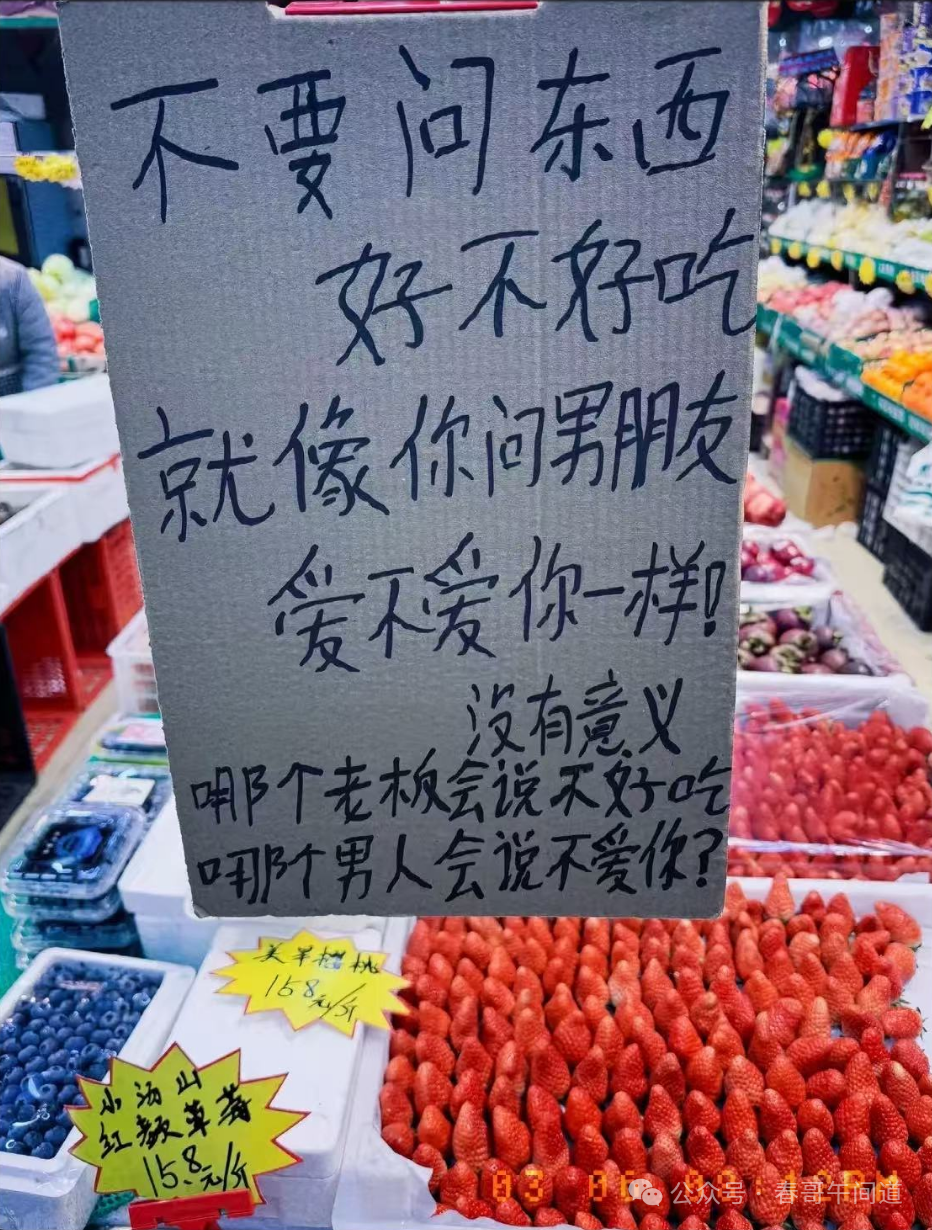 不要问东西
好不好吃
就像你问男朋友
爱不爱你一样!
没有意义
哪个老板会说不好吃
哪个男人会说不爱你?
美早樱桃
158元/斤
小汤山
红颜草莓
15.8元/斤
公众号 春哥午间道